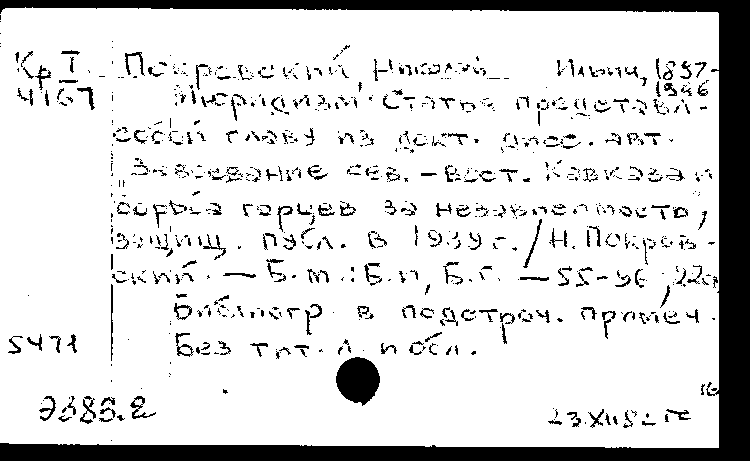 Кр I Покровский, Николай Ильич, 1897-
4167 1946
Мюридизм: Статья представл-
собой главу из докт. дисс. авт.
"Завоевание сев.-вост. Кавказа и
борьба горцев за независимость",
защищ. публ. в 1939 г. / Н. Покров-
ский. — Б.м.: Б.и, Б.г. — 55-96; 22
Библиогр. в подстроч. примеч.
5471 Без тит. л. и обл.
16
23.XII82